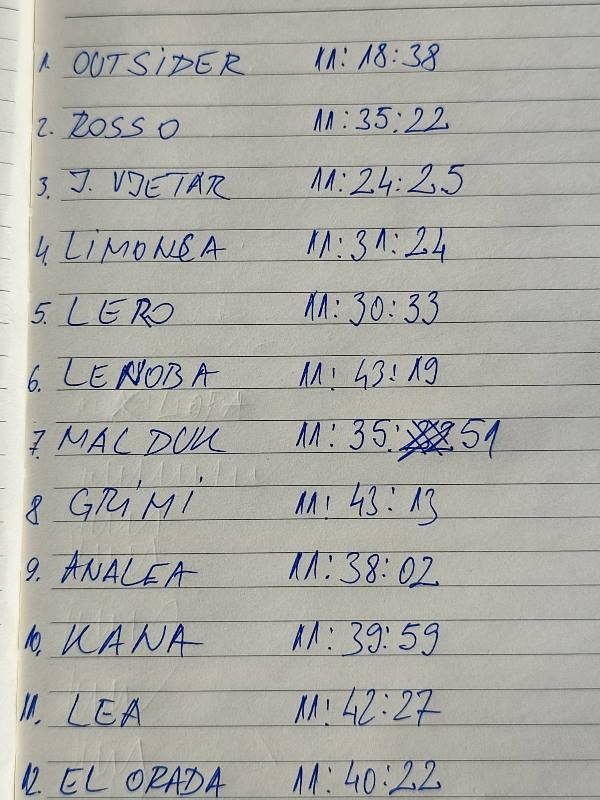 1. OUTSIDER 11:18:38
2. ROSSO 11:35:22
3. J. VJETAR 11:24:25
4. LIMONČA 11:31:24
5. LERO 11:30:33
6. LENOBA 11:43:19
7. MALDUK 11:35:51
8 GRIMI 11:43:13
9. ANALEA 11:38:02
10. KANA 11:39:59
11. LEA 11:42:27
12. EL ORADA 11:40:22